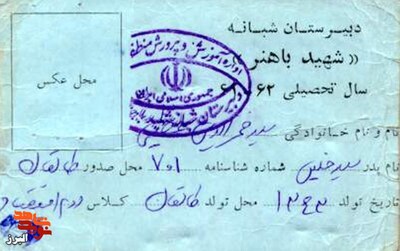 دبیرستان شبانه
« شهید باهنر »
سال تحصیلی ۶۲
محل عکس
اداره آموزش و پرورش منطقه
جمهوری اسلامی ایران
نام و نام خانوادگی سید
نام پدر سید خلیل شماره شناسنامه ۷۰۱ محل صدور طالقان
تاریخ تولد ۱۳۴۳ محل تولد طالقان کلاس دوم اقتصاد
البرز